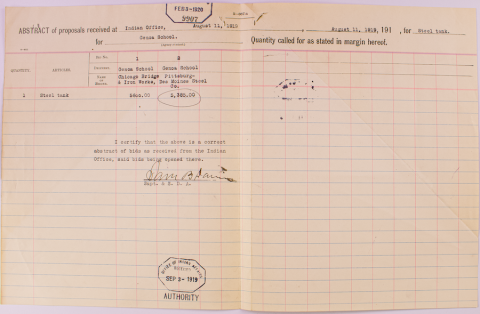 FEB 3 - 1920
5997
ABSTRACT of proposals received at Indian Office, August 11, 1919
August 11, 1919, 191 , for Steel tank.
for Genoa School.
Quantity called for as stated in margin hereof.
Bid No. 1 2
QUANTITY. ARTICLES. Genoa School Genoa School
Chicago Bridge & Iron Works, Pittsburg-Des Moines Steel Co.
1 Steel tank 2,385.00
I certify that the above is a correct
abstract of bids as received from the Indian
Office, said bids being opened there.
Sam B. Davis
Supt. & S. D. A.
OFFICE OF INDIAN AFFAIRS
RECEIVED
SEP 3 - 1919
AUTHORITY